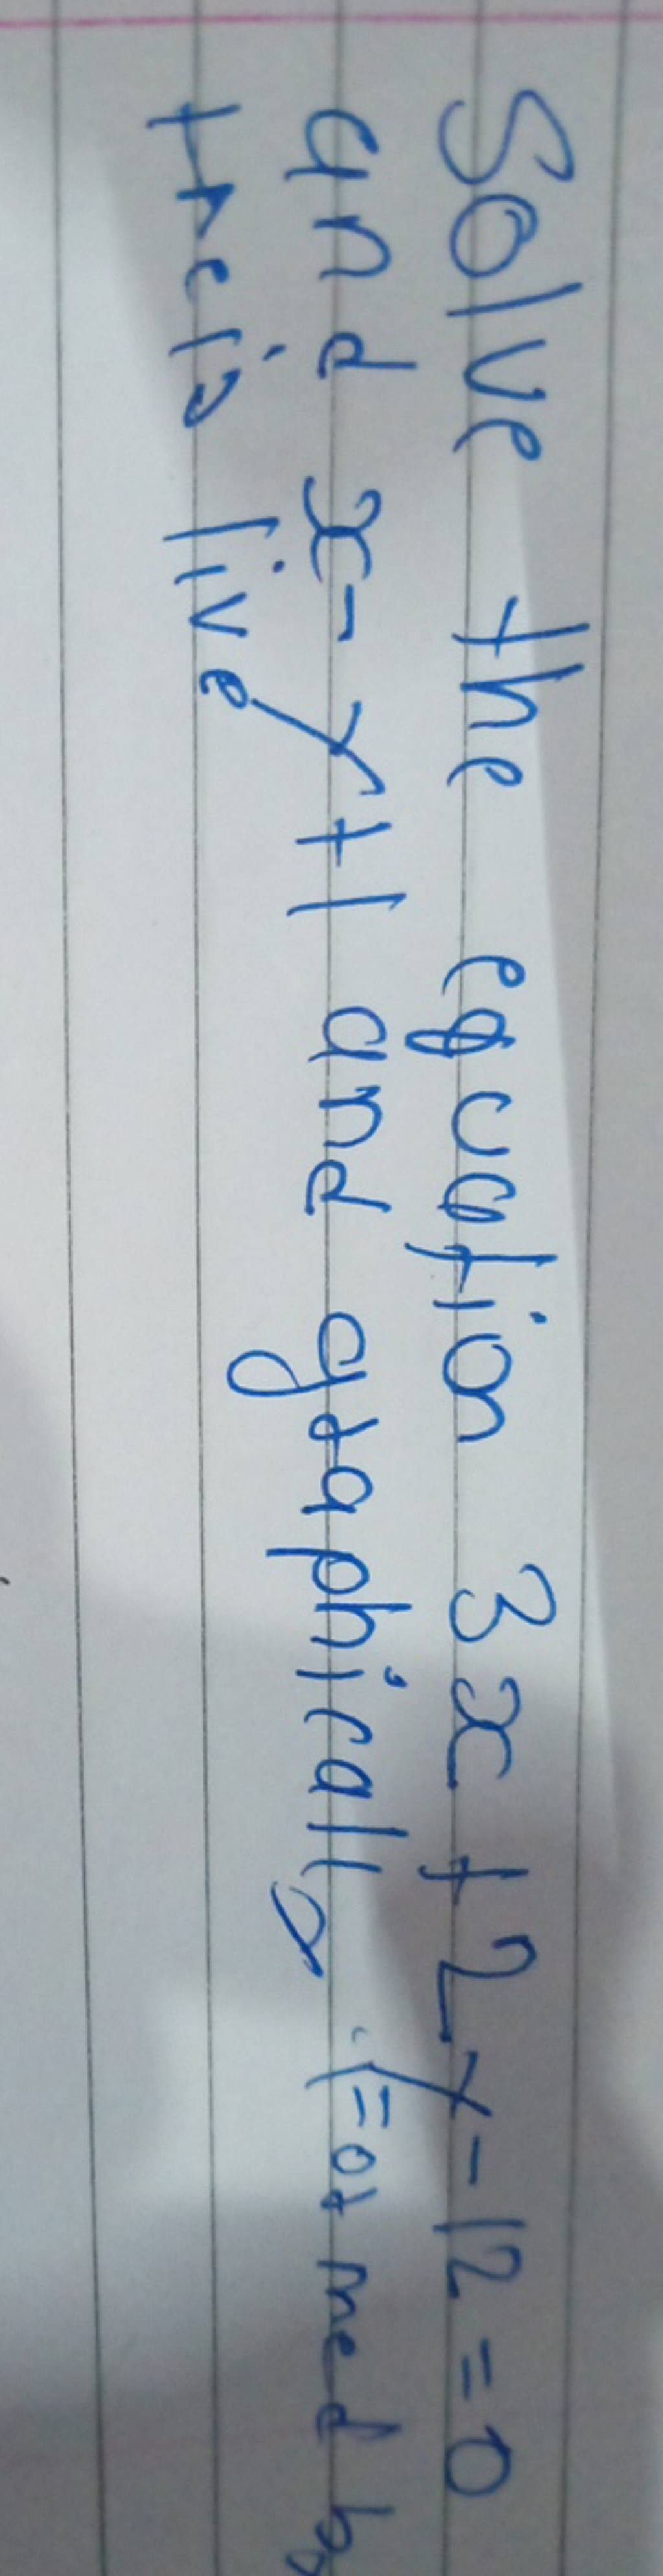 Solve the equation 3x + 2y - 12 = 0
and x - y + 1 and graphically. Formed by
their live